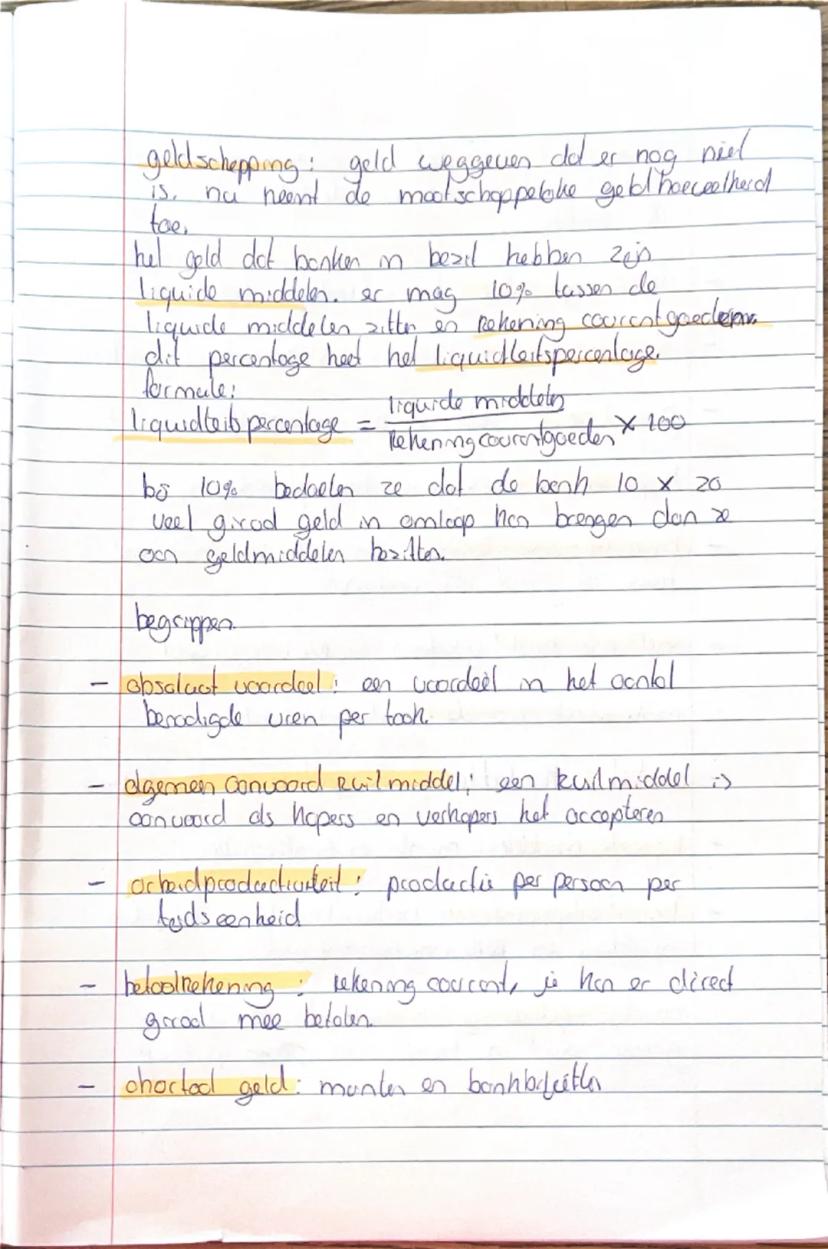 geldschepping: geld weggeven dat er nog niet
is. nu neemt de maatschappelijke geldhoeveelheid
toe.
het geld dat banken in bezit hebben zijn
liquide middelen. er mag 10% tussen de
liquide middelen zitten en rekening courantgoeden.
dit percentage heet het liquidteitspercentage.
formule:
liquidteitspercentage = liquide middelen / rekening courantgoeden × 100
bij 10% bedoelen ze dat de bank 10 x zo
veel giraal geld in omloop kan brengen dan ze
aan geldmiddelen bezitten.
begrippen
- absoluut voordeel: een voordeel in het aantal
benodigde uren per taak.
- algemen aanvaard ruilmiddel: een ruilmiddel is
aanvaard als kopers en verkopers het accepteren
- arbeidproductiviteit: productie per persoon per
tijdseenheid
- betaalrekening: rekening courant, je kan er direct
giraal mee betalen
- chartaal geld: munten en bankbiljetten